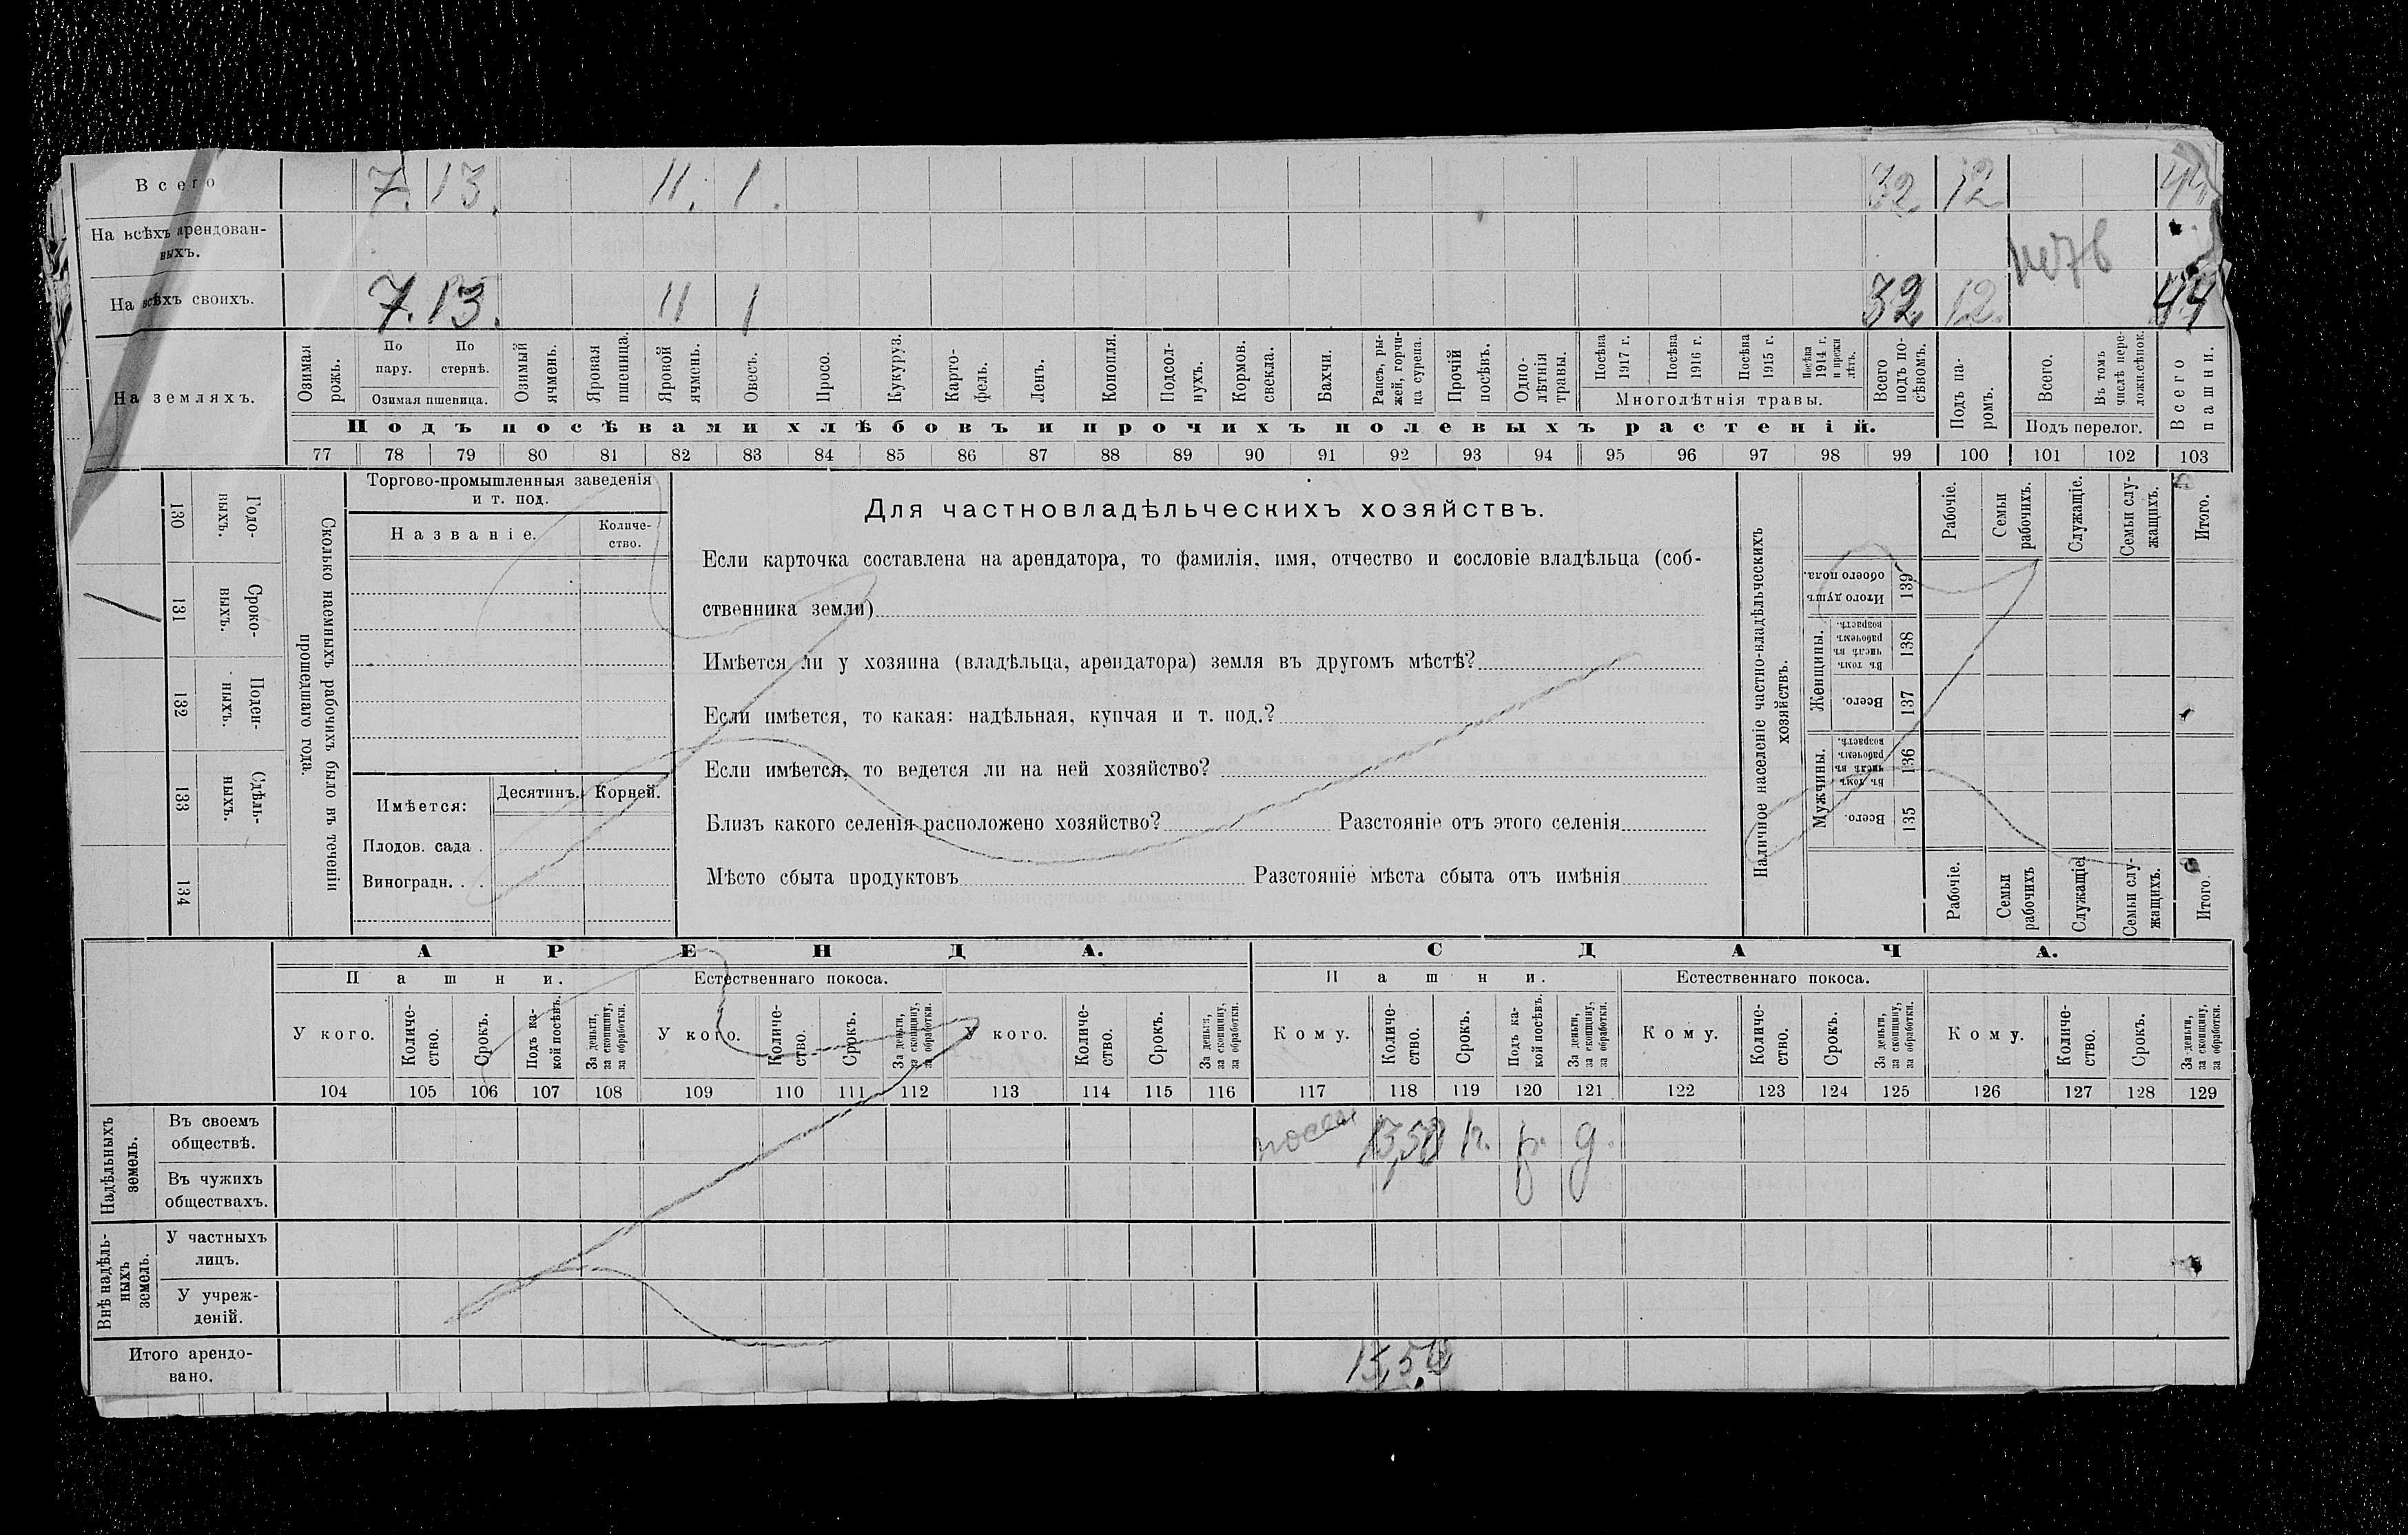 Всего 7. 13. 11. 1. 32 12 44
На всѣхъ арендован-
ныхъ.
На всѣхъ своихъ. 7. 13. 11 1 32 12. 44
На земляхъ.
Озимая рожь.
По пару.
По стернѣ.
Озимая пшеница.
Озимый ячмень.
Яровая пшеница.
Яровой ячмень.
Овесъ.
Просо.
Кукуруз.
Карто-
фель.
Ленъ.
Конопля.
Подсол-
нухъ.
Кормов. свекла.
Бахчи.
Рапсъ, ры-
жей, горчи-
ца сурепа.
Прочій посѣвъ.
Одно-
лѣтнія травы.
Посѣва 1917 г.
Посѣва 1916 г.
Посѣва 1915 г.
Посѣва 1914 г. и прежн лѣтъ.
Многолѣтнія травы.
Всего подъ по-
сѣвомъ.
Подъ па-
ромъ.
Всего.
Въ томъ числѣ пере-
ложн.сѣнок.
Подъ перелог.
Всего пашни.
Подъ посѣвами хлѣбовъ и прочихъ полевыхъ растеній.
77 78 79 80 81 82 83 84 85 86 87 88 89 90 91 92 93 94 95 96 97 98 99 100 101 102 103
130 Годо-
выхъ.
131 Сроко-
выхъ.
132 Поден-
ныхъ.
133 Сдѣль-
ныхъ.
134
Сколько наемныхъ рабочихъ было въ теченіи
прошедшаго года.
Торгово-промышленныя заведенія
и т. под.
Названіе.
Количе-
ство.
Имѣется:
Десятинъ. Корней.
Плодов. сада .
Виноградн. . .
Для частновладѣльческихъ хозяйствъ.
Если карточка составлена на арендатора, то фамилія, имя, отчество и сословіе владѣльца (соб-
ственника земли)
Имѣется ли у хозяина (владѣльца, арендатора) земля въ другомъ мѣстѣ?
Если имѣется, то какая: надѣльная, купчая и т. под.?
Если имѣется, то ведется ли на ней хозяйство?
Близъ какого селенія расположено хозяйство? Разстояніе отъ этого селенія
Мѣсто сбыта продуктовъ Разстояніе мѣста сбыта отъ имѣнія
Наличное населеніе частно-владѣльческихъ
хозяйствъ.
Рабочіе.
Семьи рабочихъ.
Служащіе.
Семьи слу-
жащихъ.
Итого.
Итого душъ обоего пола. 139
Женщины.
Въ томъ числѣ въ рабочемъ возрастѣ. 138
Всего. 137
Мужчины.
Въ томъ числѣ въ рабочемъ возрастѣ. 136
Всего. 135
Рабочіе.
Семьи рабочихъ
Служащіе
Семьи слу-
жащихъ.
Итого
АРЕНДА. СДАЧА.
Пашни. Естественнаго покоса. Пашни. Естественнаго покоса.
У кого.
Количе-
ство.
Срокъ.
Подъ ка-
кой посѣвъ.
За деньги, за скопщину, за обработки.
У кого.
Количе-
ство.
Срокъ.
За деньги, за скопщину, за обработки.
У кого.
Количе-
ство.
Срокъ.
За деньги, за скопщину, за обработки.
Кому.
Количе-
ство.
Срокъ.
Подъ ка-
кой посѣвъ.
За деньги, за скопщину, за обработки.
Кому.
Количе-
ство.
Срокъ.
За деньги, за скопщину, за обработки.
Кому.
Количе-
ство.
Срокъ.
За деньги, за скопщину, за обработки.
104 105 106 107 108 109 110 111 112 113 114 115 116 117 118 119 120 121 122 123 124 125 126 127 128 129
Надѣльныхъ
земель.
Въ своемъ
обществѣ.
Въ чужихъ
обществахъ.
Внѣ надѣль-
ныхъ
земель.
У частныхъ
лицъ.
У учреж-
деній.
Итого арендо-
вано.